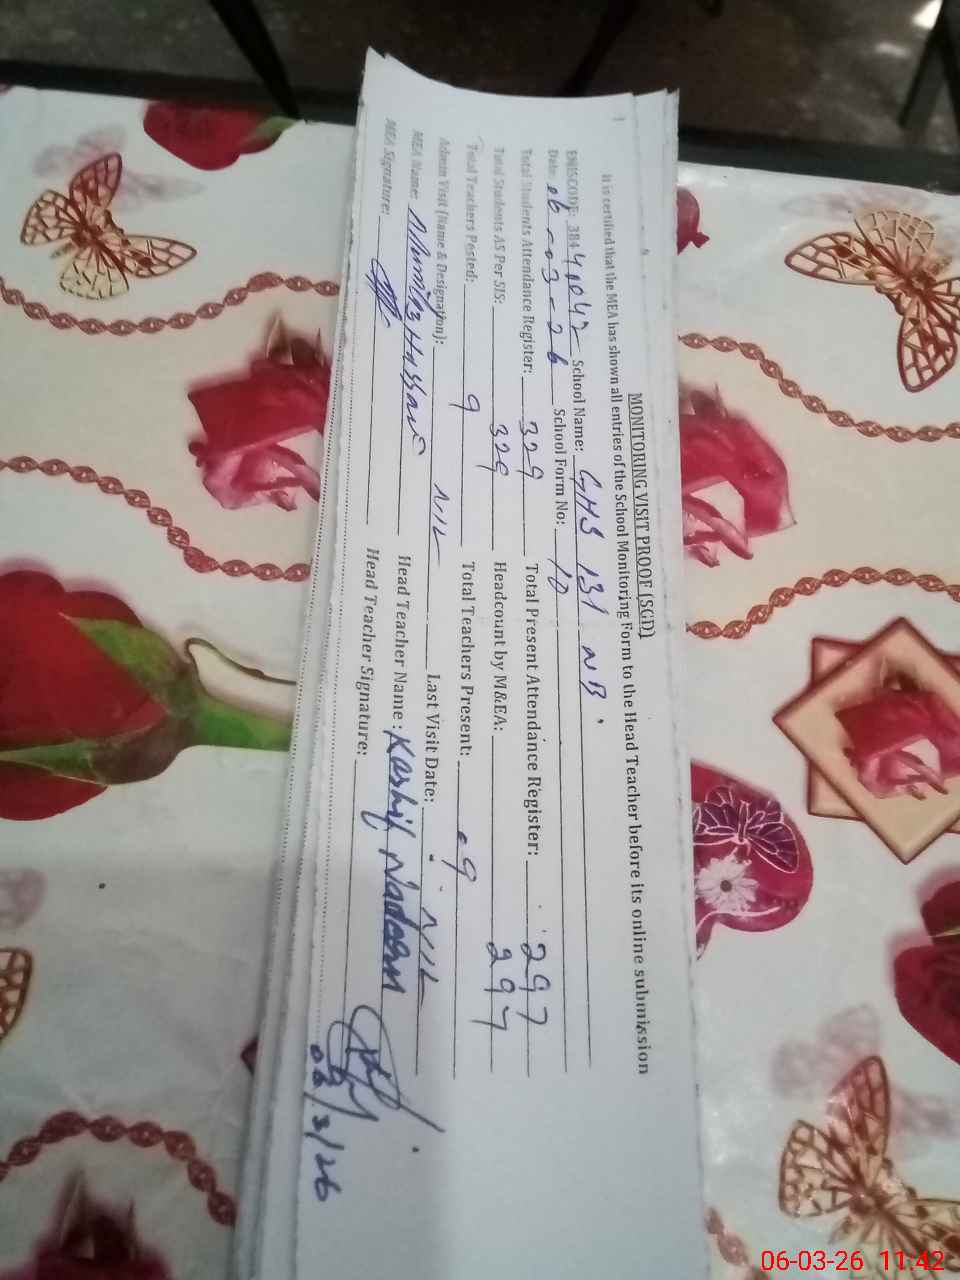 MONITORING VISIT PROOF (SGD)
It is certified that the MEA has shown all entries of the School Monitoring Form to the Head Teacher before its online submission
EMISCODE: 38440042 School Name: GHS 131 NB
Date: 06-03-26 School Form No: 10
Total Students Attendance Register: 329 Total Present Attendance Register: 297
Total Students AS Per SIS: 329 Headcount by M&EA: 297
Total Teachers Posted: 9 Total Teachers Present: 09
Admin Visit (Name & Designation): NIL Last Visit Date: NIL
MEA Name: Hassan Head Teacher Name: Kashif Nadeem
MEA Signature: Head Teacher Signature:
06/3/26
06-03-26 11:42